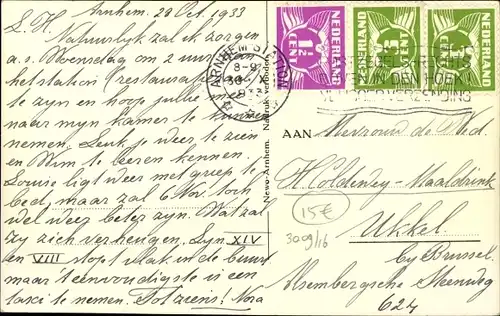 Arnhem, 29 Oct. 1933
L. H. Natuurlyk zal ik zorgen
a.s. Woensdag om 2 uur aan
het station (restauratie)
te zyn en hoop jullie mee
naar myn kamer te kunnen
nemen. Leuk je weer te zien
en Wim te leeren kennen.
Louise ligt weer met griep te
bed, maar zal 6 Nov. toch
wel weer beter zyn. Wat zal
zy zich verheugen. Lyn XIV
en VIII stopt vlak in de buurt
maar 't eenvoudigste is een
taxi te nemen. Tot ziens! Nora
Newo-Arnhem. Nadruk verboden
ARNHEM STATION
30 X
1933
NEDERLAND
1½ CENT
NEDERLAND
CENT
NEDERLAND
CENT
RECHTS
IN DEN HOEK
VERZENDING
AAN Mevrouw de Wed.
Holdewey-Maaldrink
Ukkel
by Brussel.
Alsembergsche Steenweg
624
15€
309/16